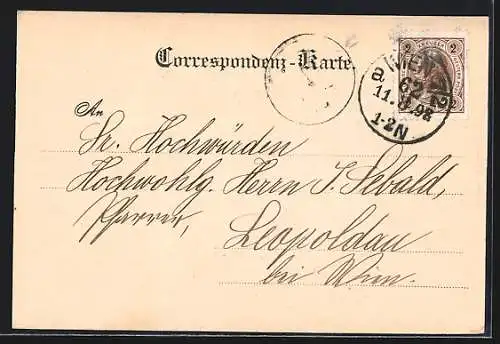 Correspondenz-Karte.
2 2
WIEN
62
11.8.98
1-2N
An
Sr. Hochwürden
Hochwohlg. Herrn J. Sebald,
Pfarrer,
Leopoldau
bei Wien.